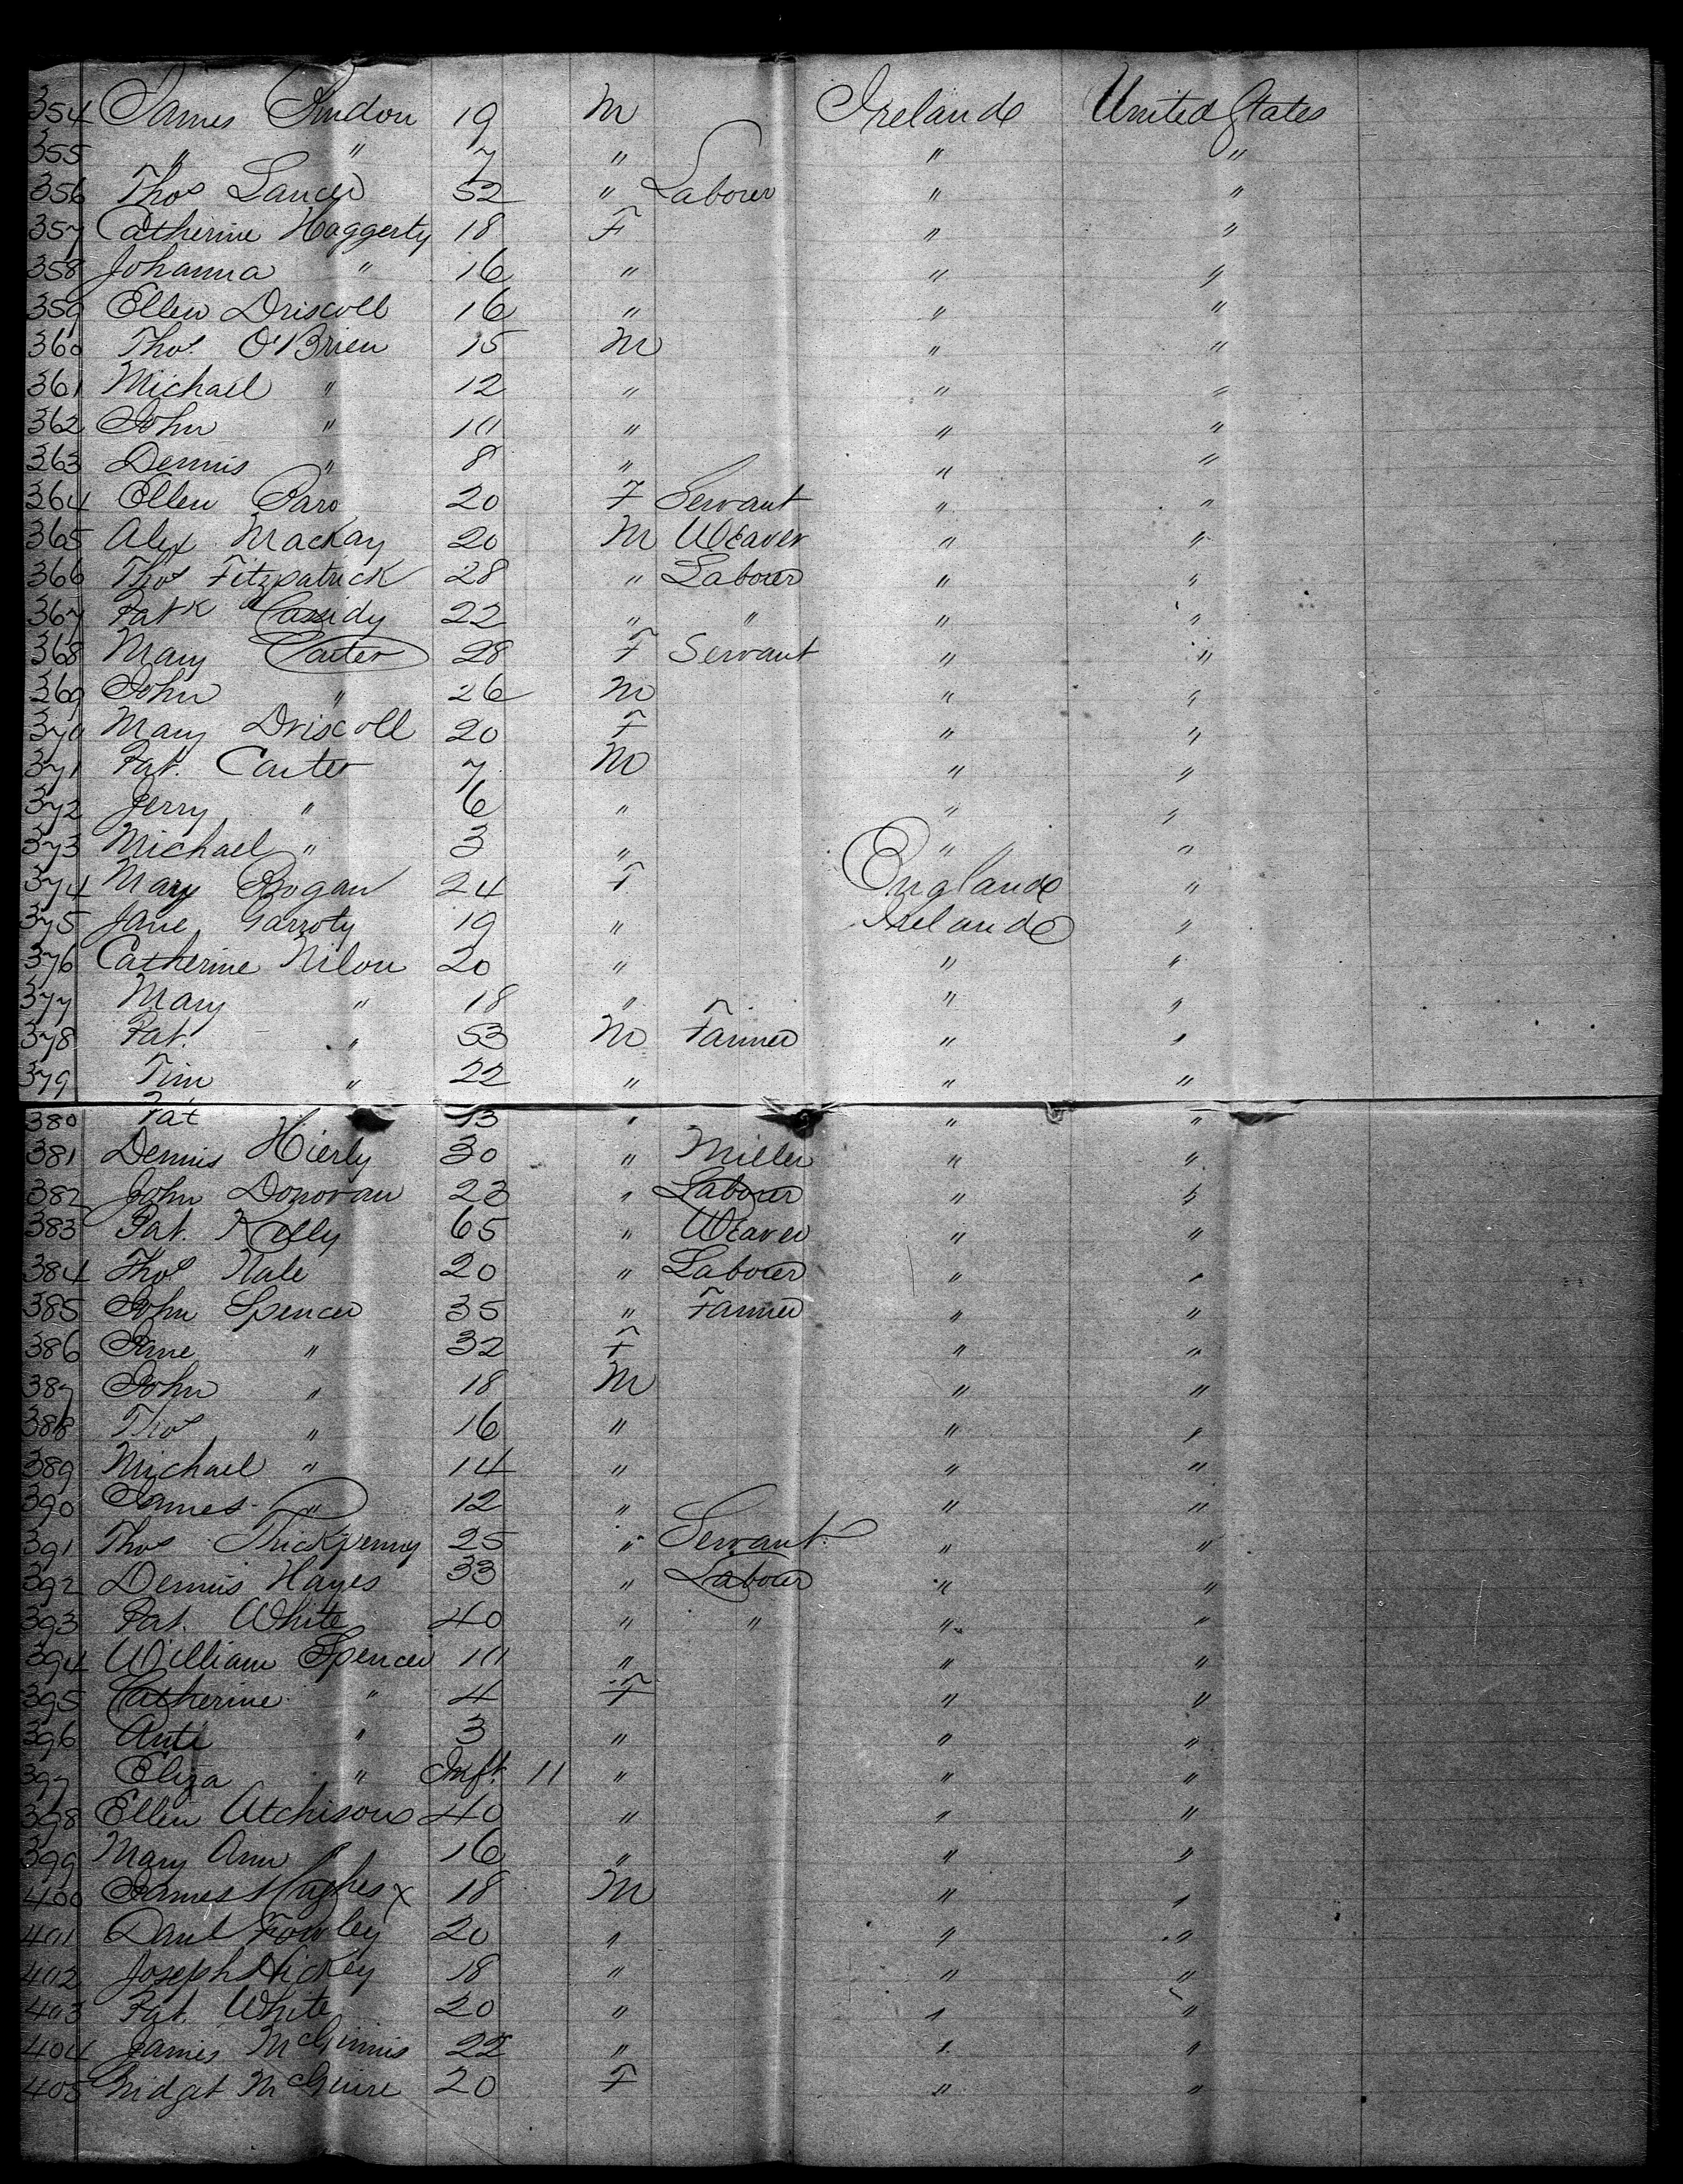 354 James 19 M Ireland United States
355 " " 7 " " "
356 Thos Lancer 52 " Labourer " "
357 Catherine Haggerty 18 F " "
358 Johanna " 16 " " "
359 Ellen Driscoll 16 " " "
360 Thos. O'Brien 15 M " "
361 Michael " 12 " " "
362 John " 10 " " "
363 Dennis " 8 " " "
364 Ellen 20 F Servant " "
365 Alex Mackay 20 M Weaver " "
366 Thos Fitzpatrick 28 " Labourer " "
367 Patk Cassidy 22 " " " "
368 Mary Carter 28 F Servant " "
369 John " 26 M " "
370 Mary Driscoll 20 F " "
371 Pat. Carter 7 M " "
372 Jerry " 6 " " "
373 Michael " 3 " " "
374 Mary Rogan 24 F England "
375 Jane Garroty 19 " Ireland "
376 Catherine Nilon 20 " " "
377 Mary " 18 " " "
378 Pat. " 53 M Farmer " "
379 Tim " 22 " " "
380 Pat 13 " " "
381 Dennis Hierly 30 " Miller " "
382 John Donovan 23 " Labourer " "
383 Pat. Kelly 65 " Weaver " "
384 Thos Nale 20 " Labourer " "
385 John Spencer 35 " Farmer " "
386 Jane " 32 F " "
387 John " 18 M " "
388 Thos " 16 " " "
389 Michael " 14 " " "
390 James " 12 " " "
391 Thos Thickpenny 25 " Servant " "
392 Dennis Hayes 33 " Labourer " "
393 Pat. White 40 " " " "
394 William Spencer 10 " " "
395 Catherine " 4 F " "
396 " 3 " " "
397 Eliza " Inft 11 " " "
398 Ellen Atchison 40 " " "
399 Mary Ann " 16 " " "
400 James Hughes x 18 M " "
401 Danl Fowley 20 " " "
402 Joseph Hickey 18 " " "
403 Pat. White 20 " " "
404 James McGinnis 22 " " "
405 Bridget McGuire 20 F " "